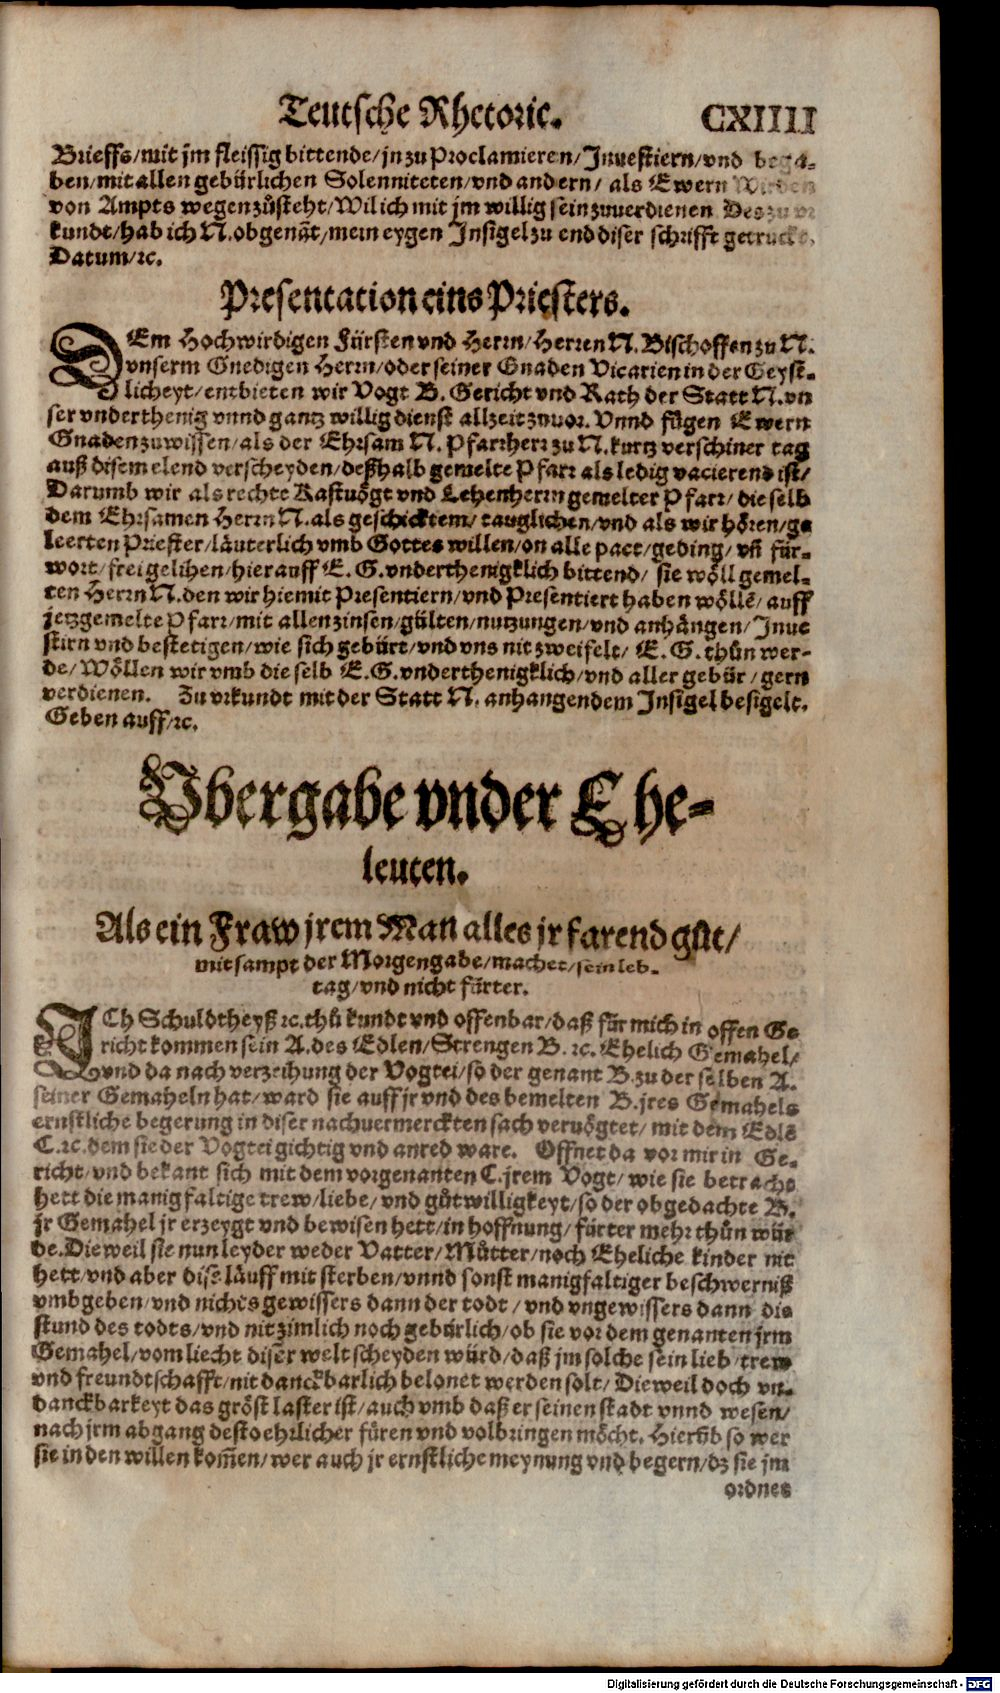 Teutsche Rhetoric. CXIIII
Brieffs/mit jm fleissig bittende/jn zu Proclamieren/Jnuestiern/vnd bega-
ben/mit allen gebürlichen Solenniteten/vnd andern/ als Ewern Wirden
von Ampts wegen zůsteht/Wil ich mit jm willig sein zuuerdienen Des zu vr
kundt/hab ich N. obgenãt/mein eygen Jnsigel zu end diser schrifft getruckt.
Datum/ꝛc.
Presentation eins Priesters.
DEm Hochwirdigen Fürsten vnd Herrn/Herren N. Bischoffen zu N.
vnserm Gnedigen Herrn/oder seiner Gnaden Vicarien in der Geyst-
licheyt/entbieten wir Vogt B. Gericht vnd Rath der Statt N. vn
ser vnderthenig vnnd gantz willig dienst allzeit zuuor. Vnnd fůgen Ewern
Gnaden zuwissen/als der Ehrsam N. Pfarrherr zu N. kurtz verschiner tag
auß disem elend verscheyden/deßhalb gemelte Pfarr als ledig vacierend ist/
Darumb wir als rechte Kastuögt vnd Lehenherrn gemelter Pfarr/die selb
dem Ehrsamen Herrn N. als geschicktem/tauglichen/vnd als wir hören/ge
leerten Priester/läuterlich vmb Gottes willen/on alle pact/geding/ vñ für-
wort/frei gelihen/hierauff E. G. vnderthenigklich bittend/ sie wöll gemel-
ten Herrn N. den wir hiemit Presentiern/vnd Presentiert haben wöllē/ auff
jetzgemelte Pfarr/mit allen zinsen/gülten/nutzungen/vnd anhängen/Jnue
stirn vnd bestetigen/wie sich gebürt/vnd vns nit zweifelt/ E. G. thůn wer-
de/Wöllen wir vmb die selb E. G. vnderthenigklich/vnd aller gebür/gern
verdienen. Zu vrkundt mit der Statt N. anhangendem Jnsigel besigelt.
Geben auff/ꝛc.
Vbergabe vnder Ehe-
leuten.
Als ein Fraw jrem Man alles jr farend gůt/
mitsampt der Morgengabe/machet/sein leb-
tag/vnd nicht fürter.
JCh Schuldtheyß ꝛc. thů kundt vnd offenbar/daß für mich in offen Ge
richt kommen sein A. des Edlen/Strengen B. ꝛc. Ehelich Gemahel/
vnd da nach verzeihung der Vogtei/so der genant B. zu der selben A.
seiner Gemaheln hat/ward sie auff jr vnd des bemelten B. jres Gemahels
ernstliche begerung in diser nachuermerckten sach veruögtet/ mit dem Edlē
C. ꝛc. dem sie der Vogtei gichtig vnd anred ware. Offnet da vor mir in Ge-
richt/vnd bekant sich mit dem vorgenanten C. jrem Vogt/wie sie betracht
hett die manigfaltige trew/liebe/vnd gůtwilligkeyt/so der obgedachte B.
jr Gemahel jr erzeygt vnd bewisen hett/in hoffnung/fürter mehr thůn wür
de. Dieweil sie nun leyder weder Vatter/Můtter/noch Eheliche kinder nit
hett/vnd aber dise läuff mit sterben/vnnd sonst manigfaltiger beschwerniß
vmbgeben/vnd nichts gewissers dann der todt/vnd vngewissers dann die
stund des todts/vnd nit zimlich noch gebürlich/ob sie vor dem genanten jrm
Gemahel/vom liecht diser welt scheyden würd/daß jm solche sein lieb/trew
vnd freundtschafft/nit danckbarlich belonet werden solt/Dieweil doch vn-
danckbarkeyt das gröst laster ist/auch vmb daß er seinen stadt vnnd wesen/
nach jrm abgang desto ehrlicher füren vnd volbringen möcht. Hierũb so wer
sie in den willen kom̃en/wer auch jr ernstliche meynung vnd begern/dz sie jm
ordnet
Digitalisierung gefördert durch die Deutsche Forschungsgemeinschaft - DFG